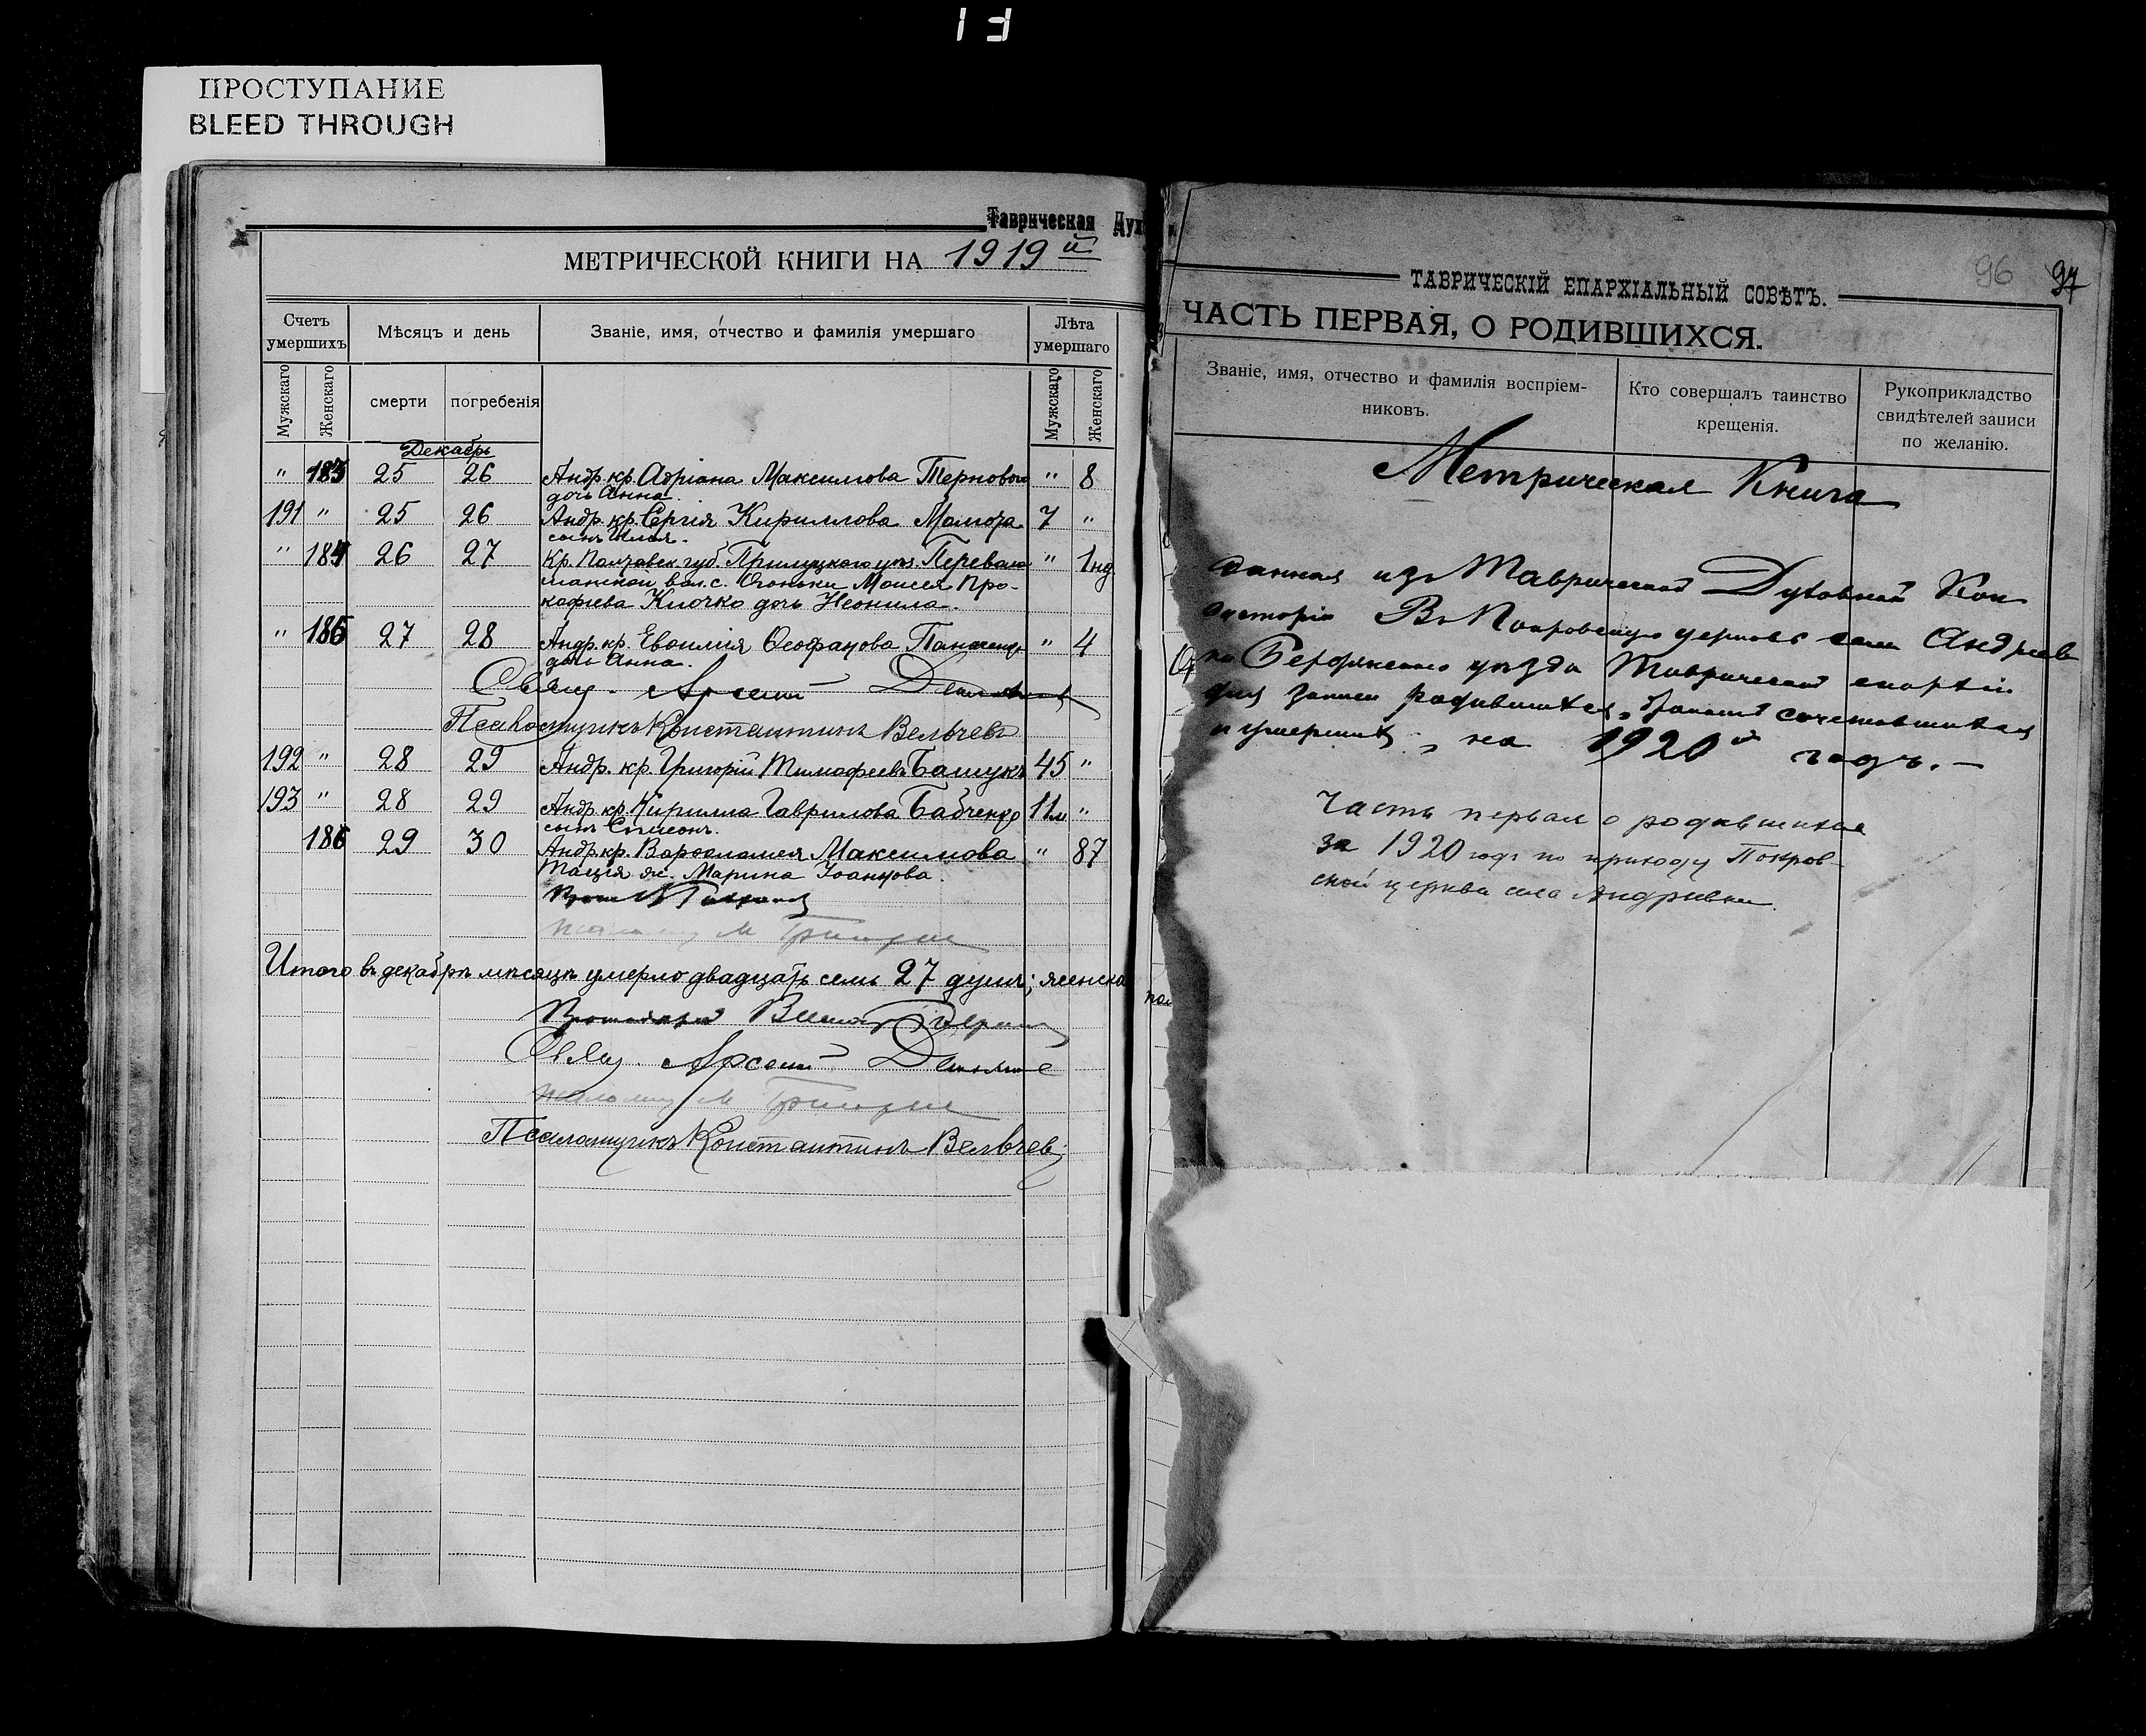 ПРОСТУПАНИЕ
BLEED THROUGH
Таврическая Дух
МЕТРИЧЕСКОЙ КНИГИ НА 1919 й
Счетъ умершихъ
Мѣсяцъ и день
Званіе, имя, отчество и фамилія умершаго
Лѣта умершаго
Мужскаго
Женскаго
смерти
погребенія
Мужскаго
Женскаго
Декабрь
" 183 25 26 Андр. кр. Адріана Максимова Тернового " 8
дочь Анна.
191 " 25 26 Андр. кр. Сергія Кириллова 7 "
сынъ Илья.
" 184 26 27 Кр. Полтавск. губ. Прилуцкаго уѣз. " 1 нд
вол. с. Моисея Про-
кофіева Клочко дочь Неонила.
" 185 27 28 Андр. кр. Евѳимія Ѳеофанова " 4
дочь Анна.
Свящ. Арсеній
Псаломщикъ Константинъ Вельчевъ
192 " 28 29 Андр. кр. Григорій Тимофеевъ Башукъ 45 "
193 " 28 29 Андр. кр. Кирилла Гаврилова Бабченко 11м "
сынъ Симеонъ.
186 29 30 Андр. кр. Варѳоломея Максимова " 87
ж. Марина Іоаннова.
Итого въ декабрѣ мѣсяцѣ умерло двадцать семь 27 душъ; женска
Свящ. Арсеній
Псаломщикъ Константинъ Вельчев
96 97
ТАВРИЧЕСКІЙ ЕПАРХІАЛЬНЫЙ СОВѢТЪ.
ЧАСТЬ ПЕРВАЯ, О РОДИВШИХСЯ.
Званіе, имя, отчество и фамилія воспріем-
никовъ.
Кто совершалъ таинство
крещенія.
Рукоприкладство
свидѣтелей записи
по желанію.
Метрическая Книга
данная изъ Таврической Духовной Кон
систоріи въ Покровскую церковь села Андреев
ки Бердянскаго уѣзда Таврической епархіи
для записи родившихся, бракомъ сочетавшихся
и умершихъ, на 1920 й годъ. —
Часть первая о родившихся
за 1920 годъ по приходу Покров-
ской церкви села Андреевки.